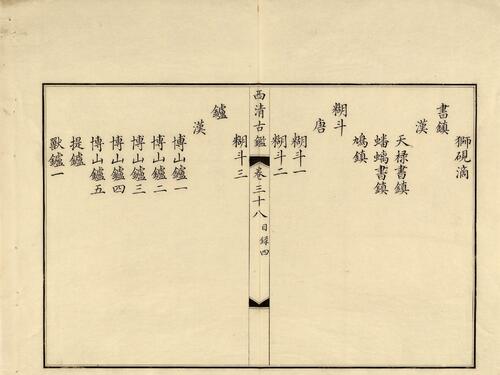 獅硯滴
書鎮
漢
天祿書鎮
蟠螭書鎮
鳩鎮
糊斗
唐
糊斗一
糊斗二
西清古鑑 卷三十八 目錄 四
糊斗三
鑪
漢
博山鑪一
博山鑪二
博山鑪三
博山鑪四
博山鑪五
提鑪
獸鑪一